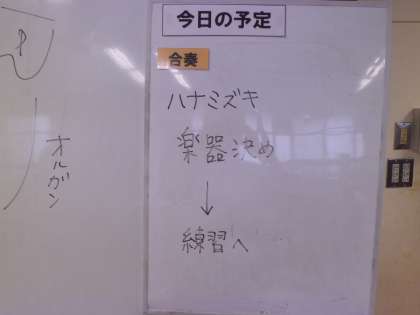 今日の予定
合奏
ハナミズキ
楽器決め
↓
練習へ
オルガン
P